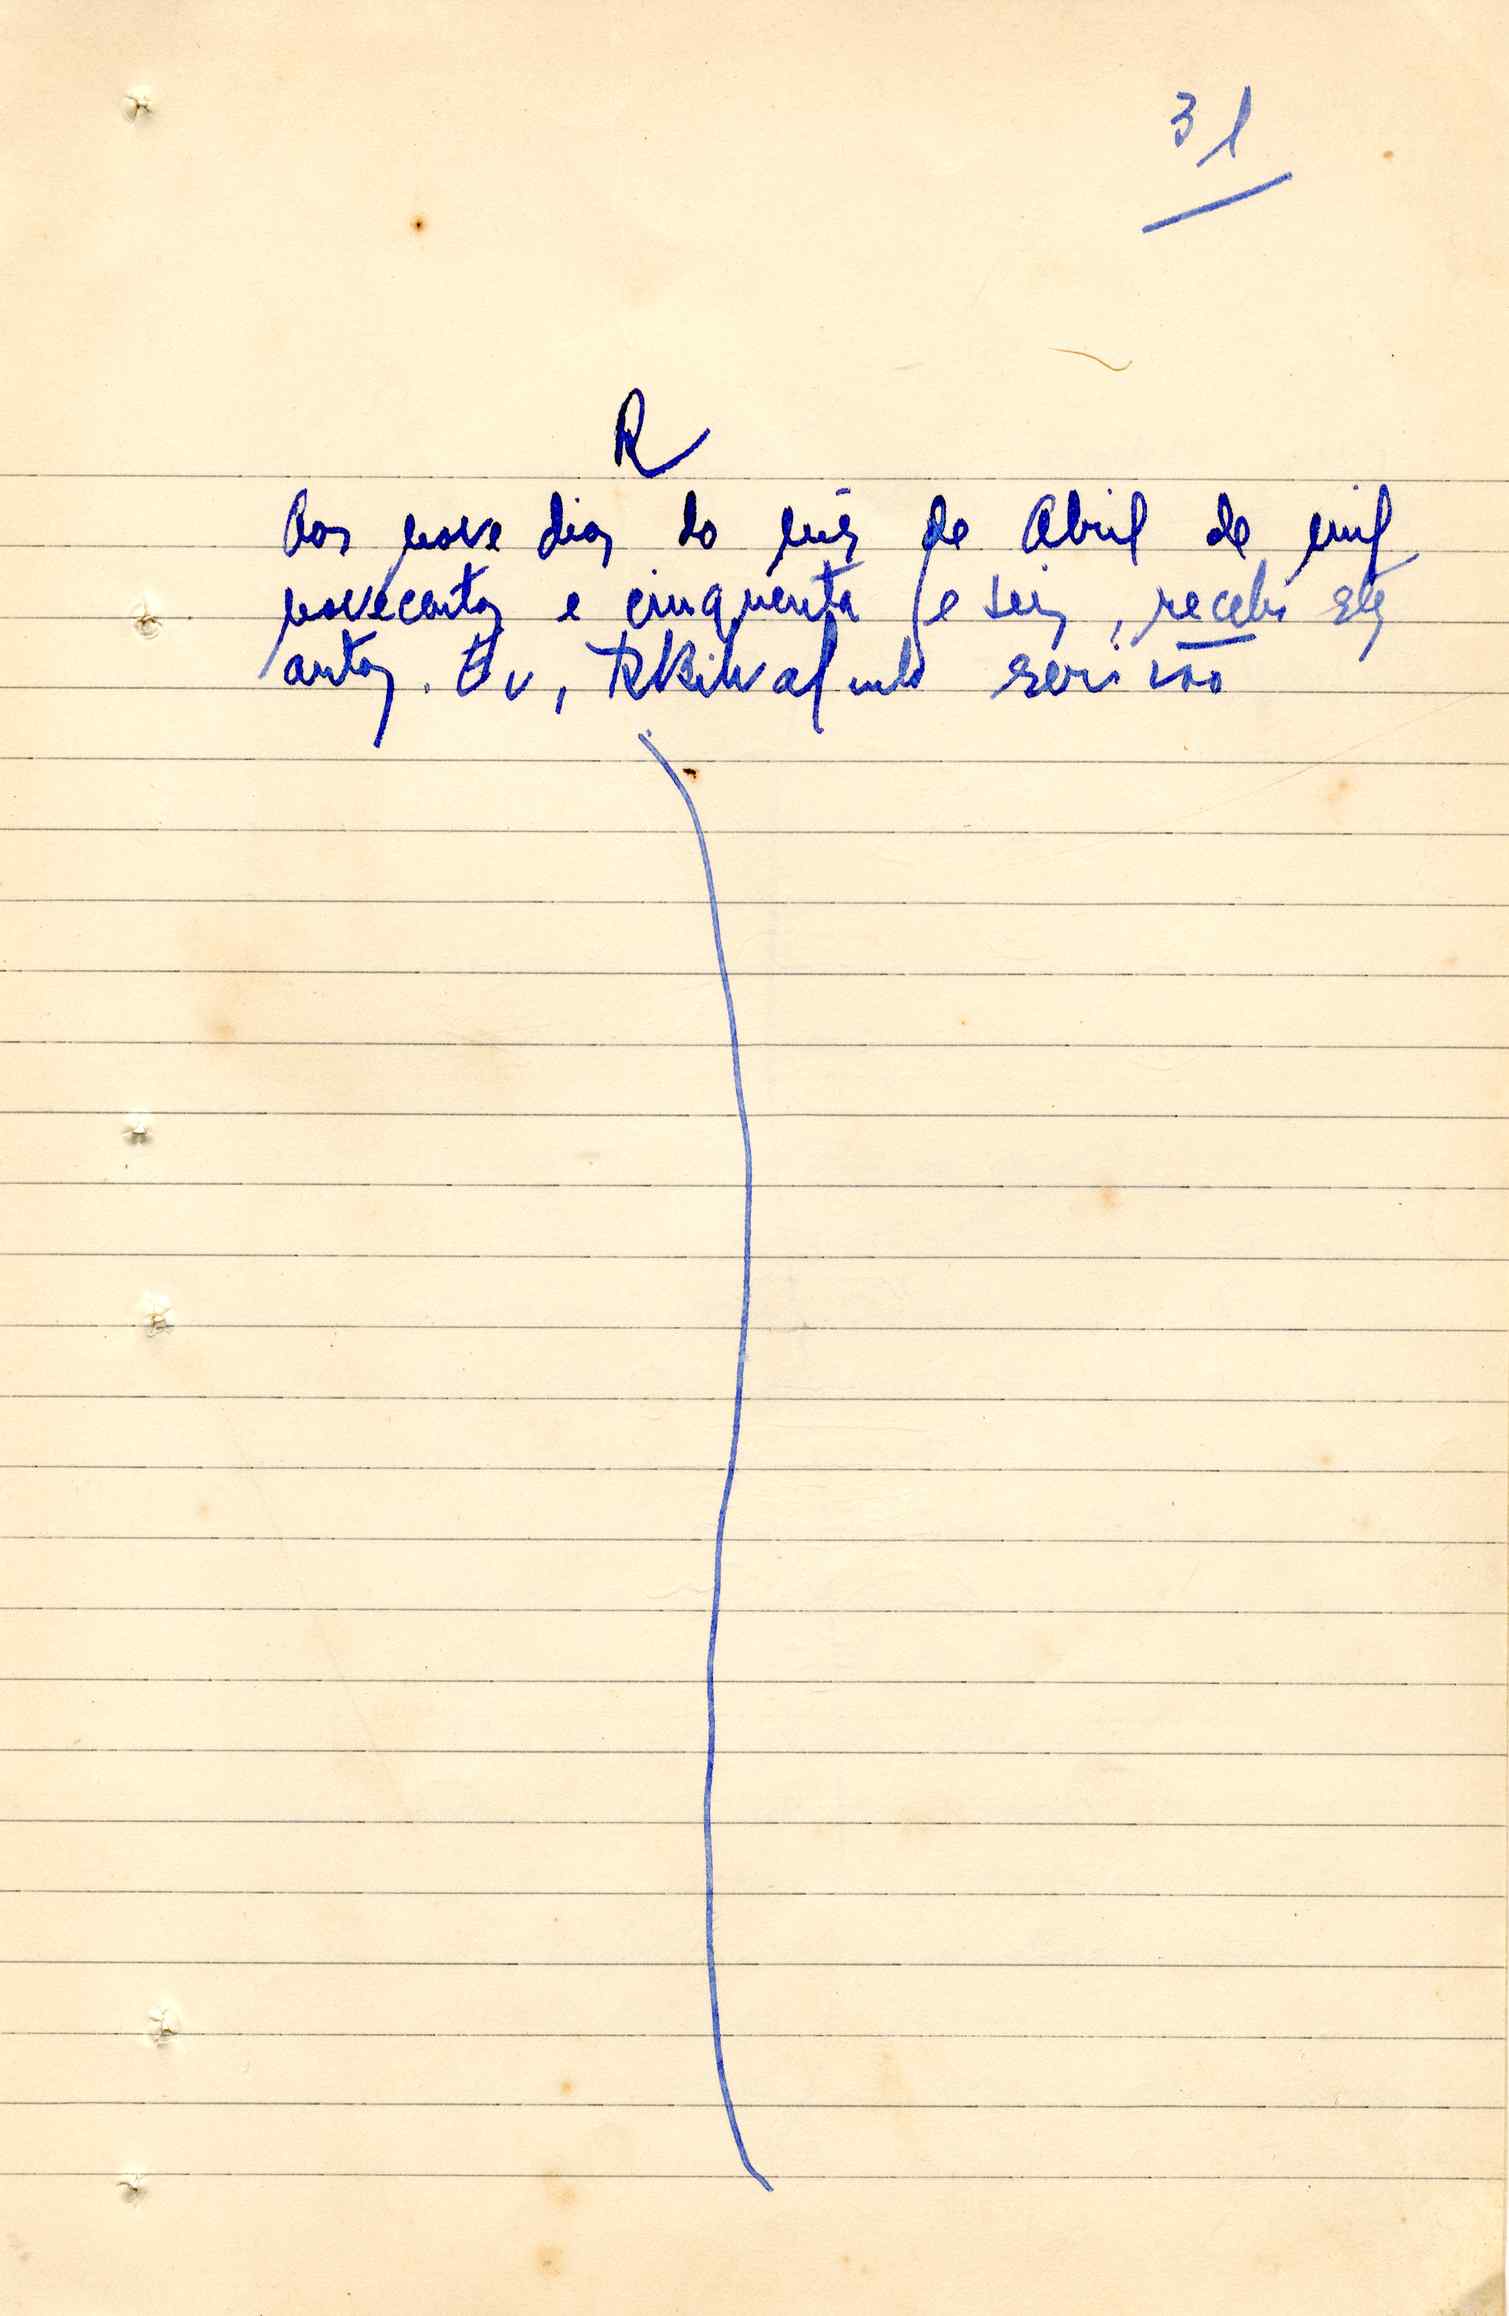 31
R
Aos nove dias do mês de Abril de mil
novecentos e cinquenta e seis, recebi estes
autos. Eu, escrivão